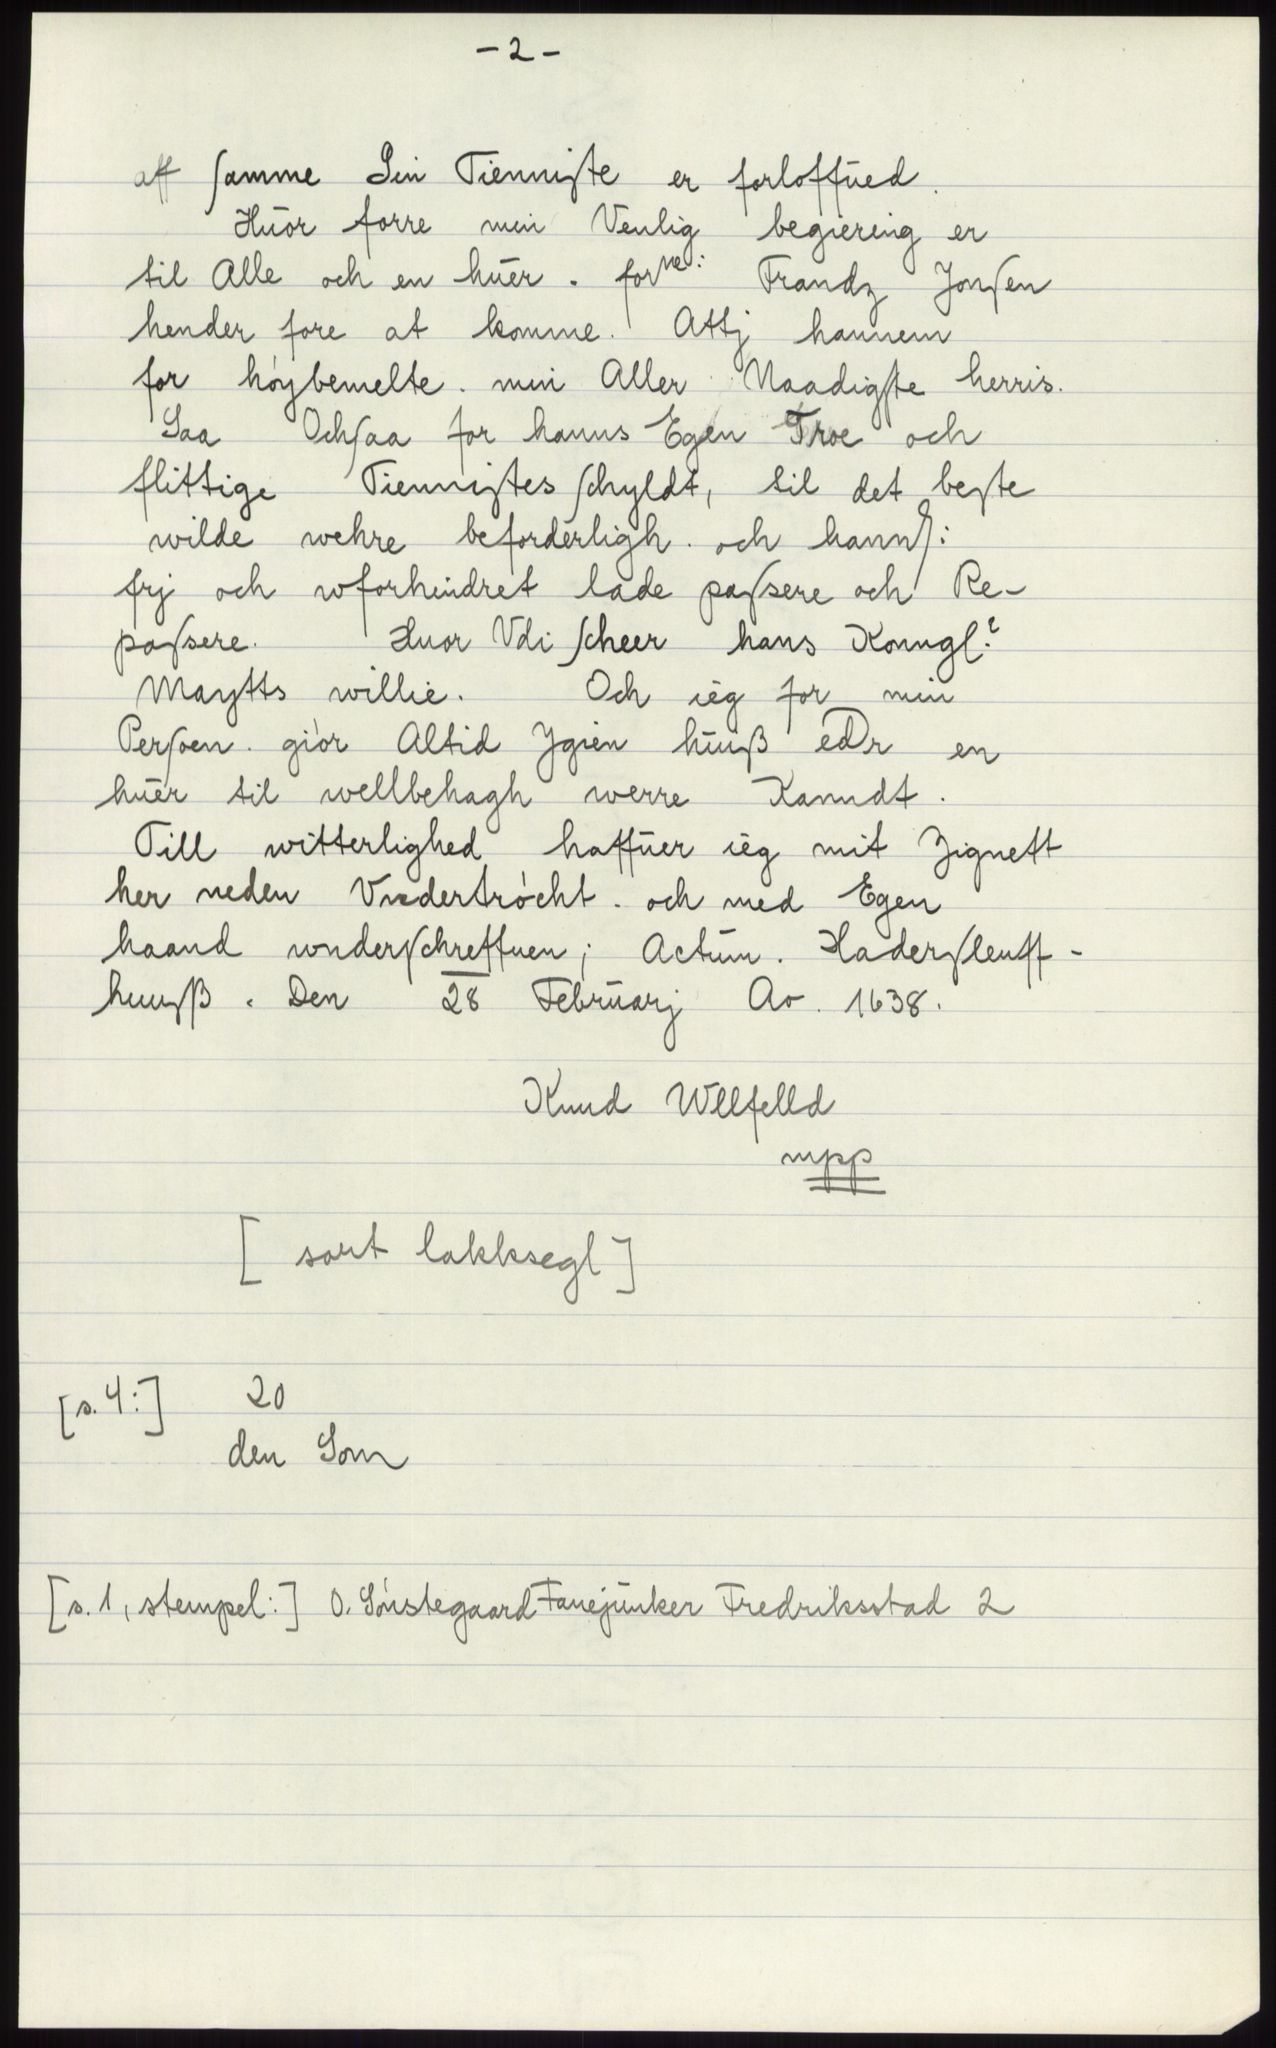 - 2 -
aff samme Sin Tienniste er forloffued.
Huor forre min Venlig begiering er
til Alle och en huer. forne: Frandz Jonsen
hender fore at komme. Attj hannem
for høybemelte. min Aller Naadigste herris.
Saa Ochsaa for hanns Egen Troe och
flittige Tiennistes schyldt, til det beste
wilde wehre beforderligh. och hannß:
frj och wforhindret lade passere och Re-
passere. Huor Vdi scheer hans Konngl:
Maytts willie. Och ieg for min
Persoen. giør Altid Jgien huiß eDr en
huer til wellbehagh werre Kanndt.
Till witterlighed haffuer ieg mit Zignett
her neden Vndertrøcht. och med Egen
haand wnderschreffuen; Actum. Haderslenff-
huuß. Den 28 Februarj Ao. 1638.
Knud Wllfelld
mpp
[sort lakksegl]
[s. 4:] 20
den Som
[s. 1, stempel:] O. Sønstegaard Fanejunker Fredriksstad 2